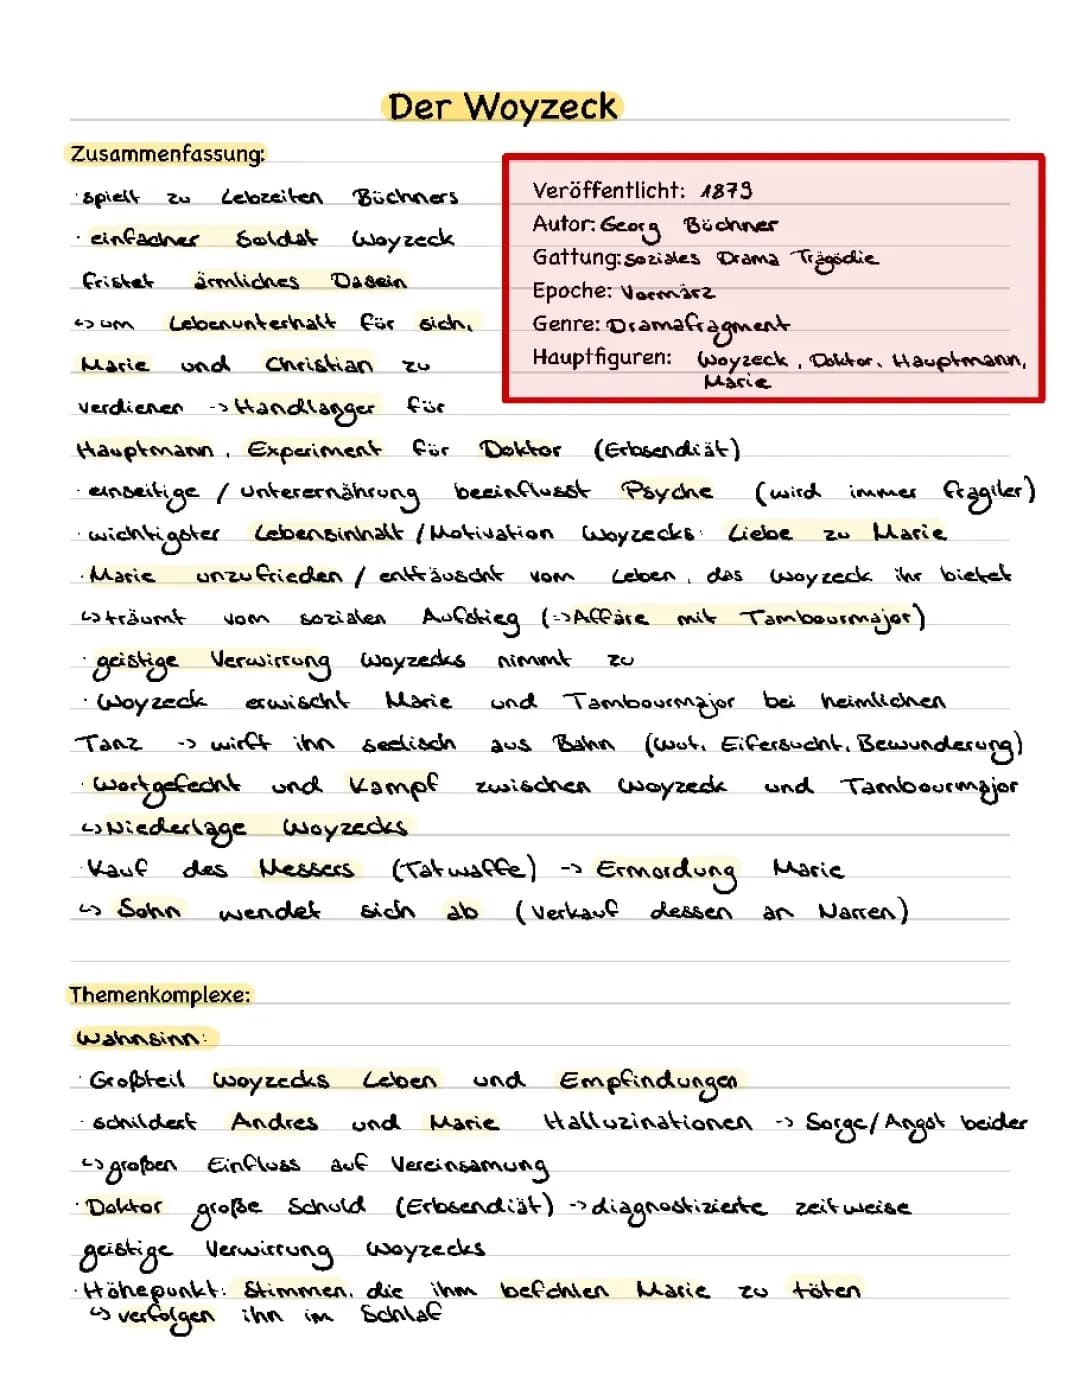 Der Woyzeck
Zusammenfassung:
· spielt zu Lebzeiten Büchners
· einfacher Soldat Woyzeck
fristet ärmliches Dasein
↳ um Lebenunterhalt für sich,
Marie und Christian zu
verdienen -> Handlanger für
Hauptmann, Experiment für Doktor (Erbsendiät)
Veröffentlicht: 1879
Autor: Georg Büchner
Gattung: soziales Drama Tragödie
Epoche: Vormärz
Genre: Dramafragment
Hauptfiguren: Woyzeck, Doktor, Hauptmann,
Marie
· einseitige / Unterernährung beeinflusst Psyche (wird immer fragiler)
· wichtigster Lebensinhalt / Motivation Woyzecks: Liebe zu Marie
· Marie unzufrieden / enttäuscht vom Leben, das Woyzeck ihr bietet
↳ träumt vom sozialen Aufstieg (=> Affäre mit Tambourmajor)
· geistige Verwirrung Woyzecks nimmt zu
· Woyzeck erwischt Marie und Tambourmajor bei heimlichen
Tanz -> wirft ihn seelisch aus Bahn (Wut, Eifersucht, Bewunderung)
· Wortgefecht und Kampf zwischen Woyzeck und Tambourmajor
↳ Niederlage Woyzecks
· Kauf des Messers (Tatwaffe) -> Ermordung Marie
↳ Sohn wendet sich ab (Verkauf dessen an Narren)
Themenkomplexe:
Wahnsinn:
· Großteil Woyzecks Leben und Empfindungen
· schildert Andres und Marie Halluzinationen -> Sorge/Angst beider
↳ großen Einfluss auf Vereinsamung
· Doktor große Schuld (Erbsendiät) -> diagnostizierte zeitweise
geistige Verwirrung Woyzecks
· Höhepunkt: Stimmen, die ihm befehlen Marie zu töten
↳ verfolgen ihn im Schlaf